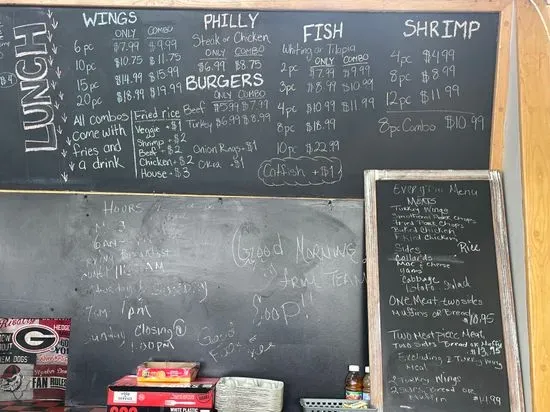 LUNCH
WINGS
ONLY COMBO
6pc $7.99 $9.99
10pc $10.75 $11.75
15pc $14.99 $15.99
20pc $18.99 $19.99
All combos
come with
fries and
a drink
Fried rice
Veggie +$1
Shrimp +$2
Beef +$2
Chicken +$2
House +$3
PHILLY
Steak or Chicken
ONLY COMBO
$6.99 $8.75
BURGERS
ONLY COMBO
Beef $5.99 $7.99
Turkey $6.99 $8.99
Onion Rings +$1
Okra +$1
FISH
Whiting or Tilapia
ONLY COMBO
2pc $7.99 $9.99
3pc $8.99 $10.99
4pc $10.99 $11.99
8pc $18.99
10pc $22.99
Catfish +$1
SHRIMP
4pc $4.99
8pc $8.99
12pc $11.99
8pc Combo $10.99
HOURS
6AM
AM
7am 1pm
Sunday Closing @
1:30PM
Good Morning
Team
Soop!!
Good
G
HEDGE
DEM DOGS
FAN RULES
WHITE PLASTIC
Everyday Menu
MEATS
Turkey Wings
Smothered Pork Chops
Fried Pork Chops
Baked Chicken
Fried Chicken
Sides Rice
Collards
Mac & cheese
yams
Cabbage
Potato Salad
ONE Meat two sides
Muffins or Bread
$10.95
TWO Meat piece Meal
Two Sides Bread or Muffin
$13.95
Excluding Turkey Wing
Meal
2 Turkey Wings
2 Sides Bread or